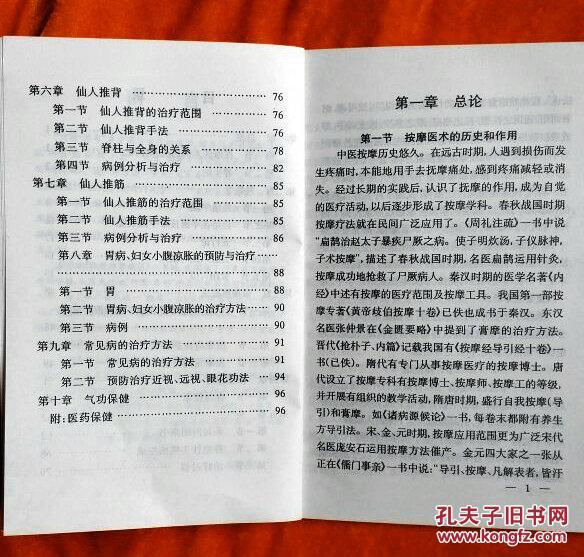 第六章　仙人推背 …………………… 76
第一节　仙人推背的治疗范围 ………… 76
第二节　仙人推背手法 ………………… 76
第三节　脊柱与全身的关系 …………… 78
第四节　病例分析与治疗 ……………… 82
第七章　仙人推筋 …………………… 85
第一节　仙人推筋的治疗范围 ………… 85
第二节　仙人推筋手法 ………………… 85
第三节　病例分析与治疗 ……………… 86
第八章　胃病、妇女小腹凉胀的预防与治疗 ……
…………………… 88
第一节　胃 …………………… 88
第二节　胃病、妇女小腹凉胀的治疗方法 …… 90
第三节　病例 …………………… 90
第九章　常见病的治疗方法 …………… 91
第一节　常见病的治疗方法 …………… 91
第二节　预防治疗近视、远视、眼花功法 …… 94
第十章　气功保健 …………………… 96
附:医药保健 …………………… 96
第一章　总论
第一节　按摩医术的历史和作用
中医按摩历史悠久。在远古时期,人遇到损伤而发
生疼痛时,本能地用手去抚摩痛处,感到疼痛减轻或消
失。经过长期的实践后,认识了抚摩的作用,成为自觉
的医疗活动,以后逐步形成了按摩学科。春秋战国时期
按摩疗法就在民间广泛应用了。《周礼注疏》一书中说
“扁鹊治赵太子暴疾尸厥之病。使子明炊汤,子仪脉神,
子术按摩”,描述了春秋战国时期,名医扁鹊运用针灸,
按摩成功地抢救了尸厥病人。秦汉时期的医学名著《内
经》中述有按摩的医疗范围及按摩工具。我国第一部按
摩专著《黄帝歧伯按摩十卷》已佚也成书于秦汉。东汉
名医张仲景在《金匮要略》中提到了膏摩的治疗方法。
晋代《抢朴子、内篇》记载我国有《按摩经导引经十卷》一
书(已佚)。隋代有专门从事按摩医疗的按摩博士。唐
代设立了按摩专科有按摩博士、按摩师、按摩工的等级,
并开展有组织的教学活动,隋唐时期,盛行自我按摩(导
引)和膏摩。如《诸病源候论》一书,每卷末都附有养生
方导引法。宋、金、元时期,按摩应用范围更为广泛宋代
名医庞安石运用按摩方法催产。金元四大家之一张从
正在《儒门事亲》一书中说:“导引、按摩、凡解表者,皆汗
— 1 —
孔夫子旧书网
www.kongfz.com